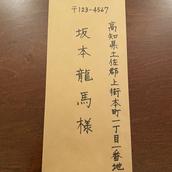 〒123-4567
高知県土佐郡上街本町一丁目一番地
坂本龍馬様